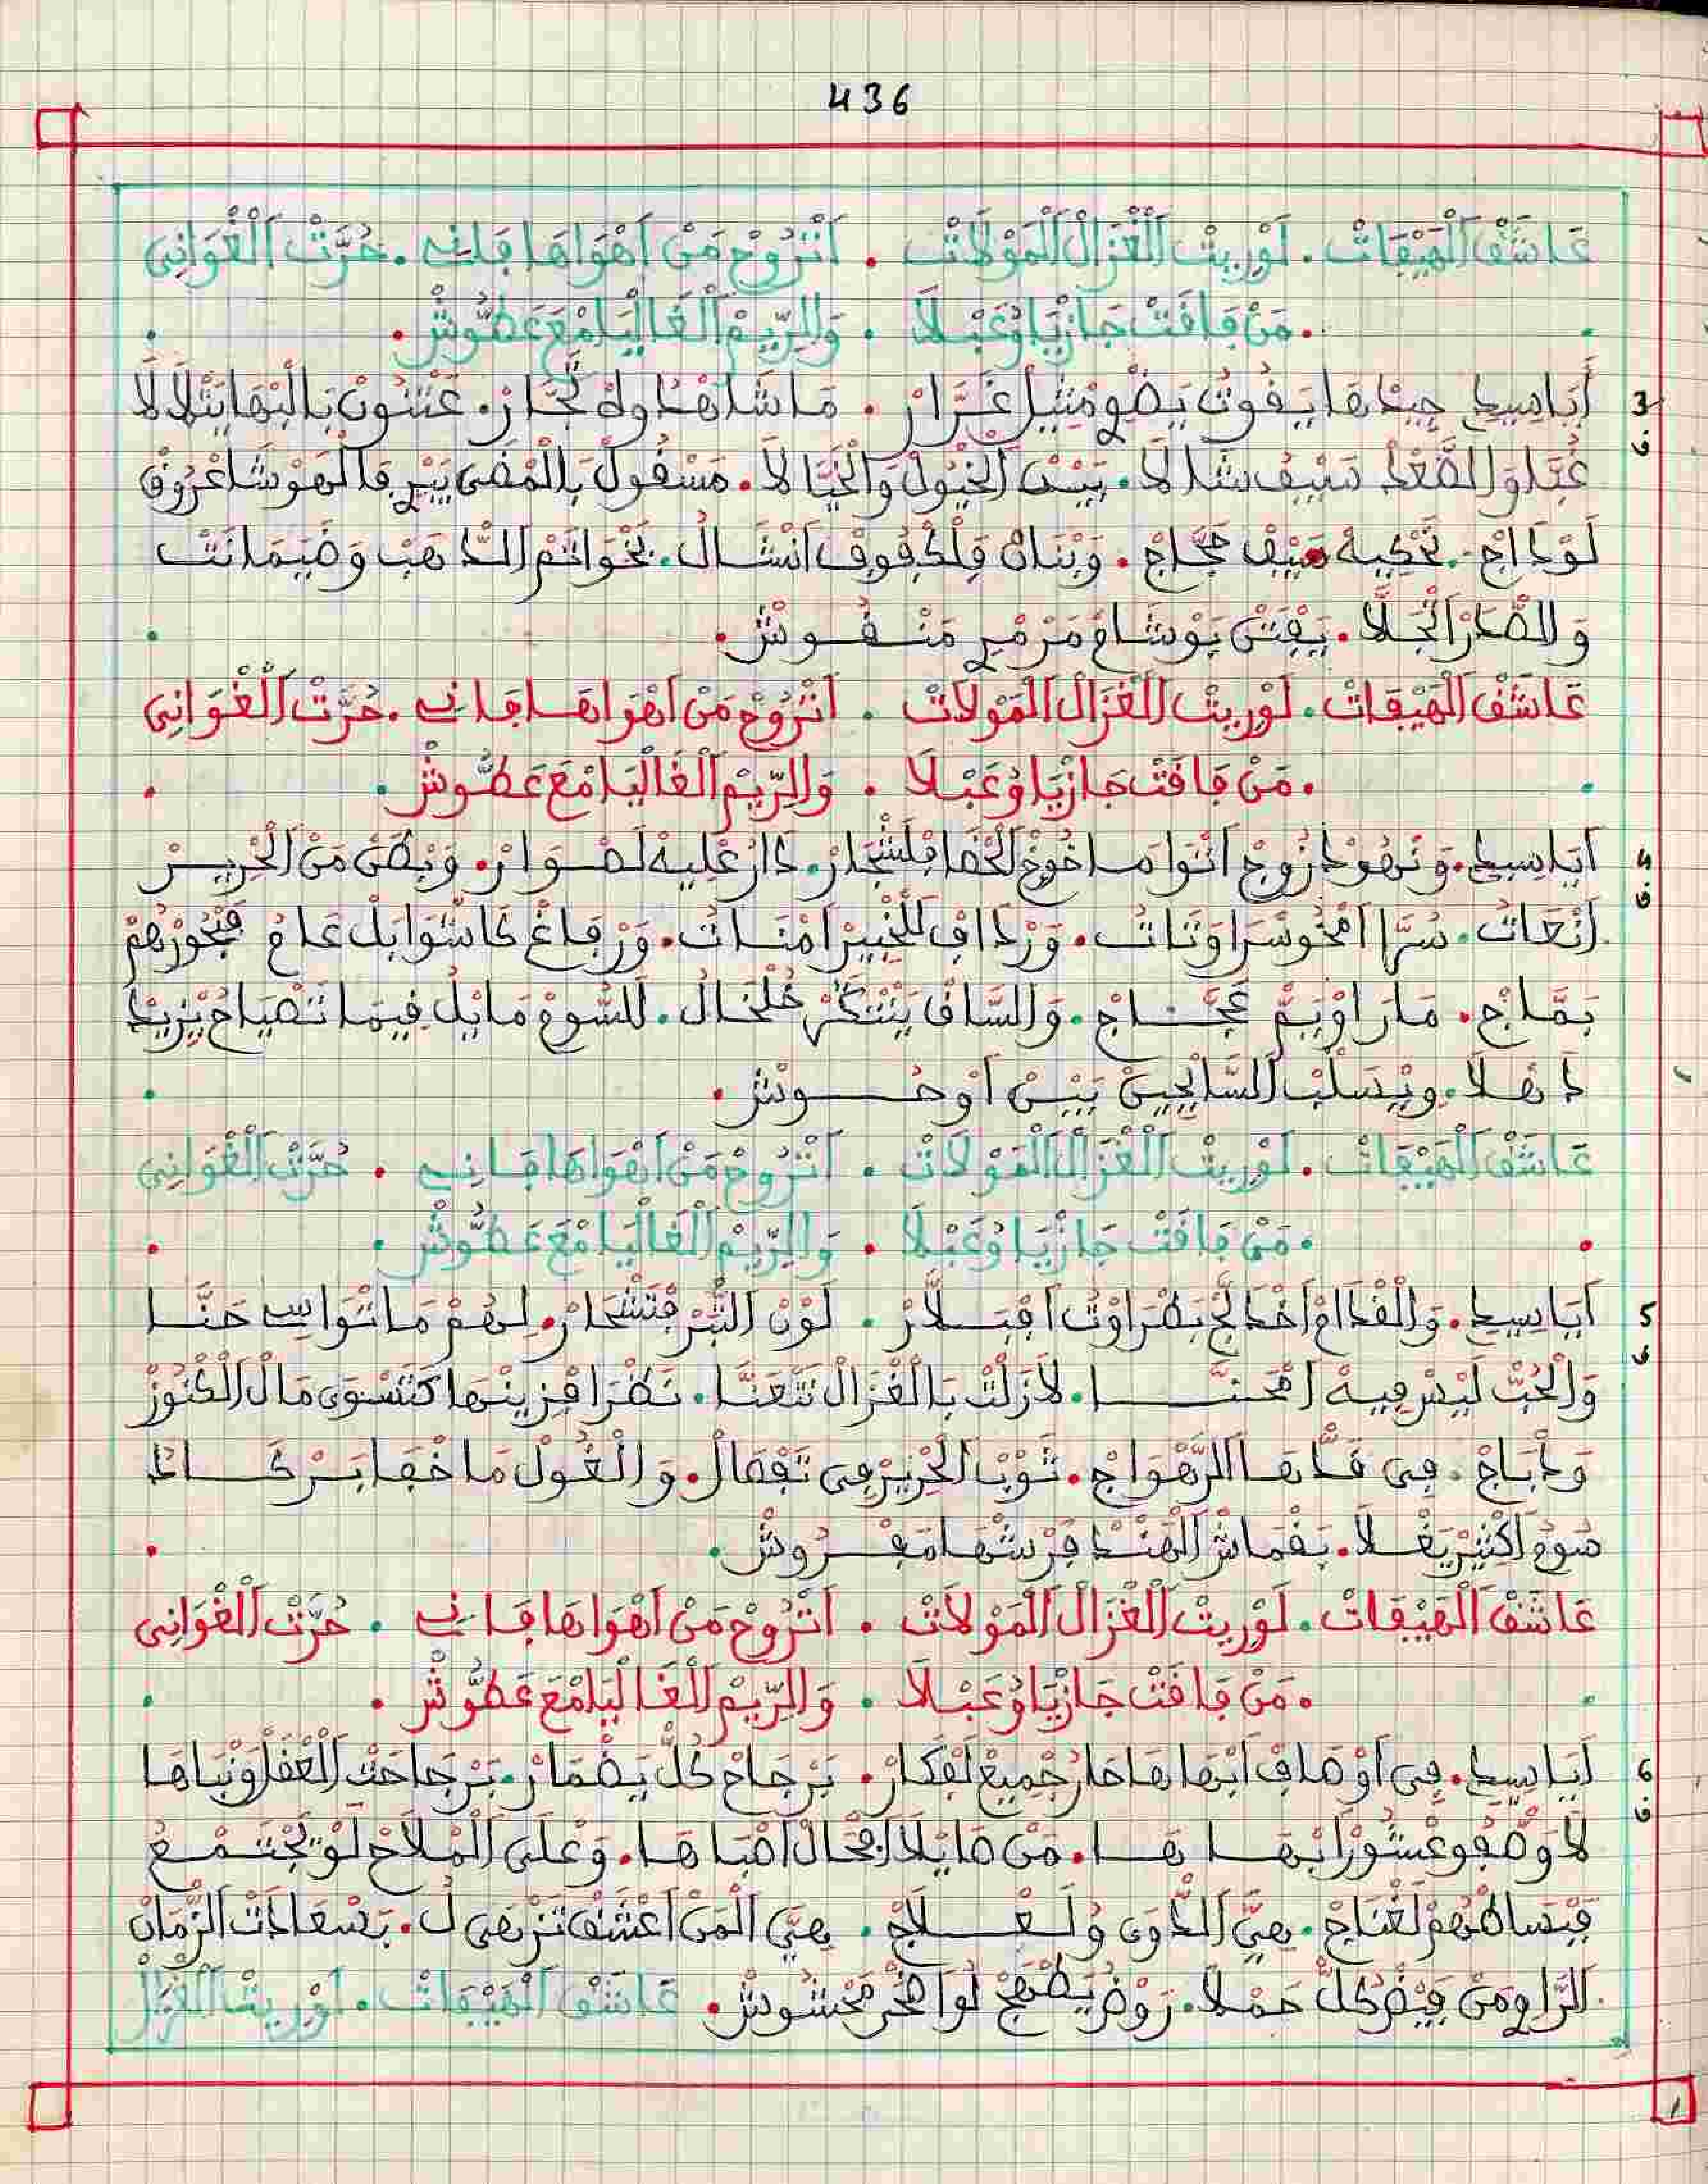 436
عَاشَقْ اَلْهَيْفَاتْ . لَوْرِيتْ اَلْغْزَالْ اَلْمَوْلَاتْ . اَتْرُوحْ مَنْ اَهْوَاهَا فَانِي . حُرَّتْ اَلْغْوَانِي
. مَنْ فَافَتْ جَازْيَا وُعَبْلَا . وَالرِّيمْ اَلْغَالْيَا مْعَ عَطُّوشْ .
3 أَيَا سِيدِي جِيدْهَا يَفُوتْ يَضْوِي مْثِيلْ غَرَّارْ . مَا شَاهْدُوهْ تُجَّارْ . عَنْنُونْ بَالْبْهَا يَتْلَالَا
ف
وَالصَّعْدْ سَيْفْ شَلَالَا . بَيْنْ الْخْيُولْ وَالْخْيَّالَا . مَسْقُولْ بَالْمْضَى يَبْرِي فَالْهَوْشَا عْرُوقْ
لَوْدَاجْ . تَحْكِيهْ سَيْفْ حَجَّاجْ . وَبْنَانْ فَلْكْفُوفْ اَنْشَالْ . بَخْوَاتَمْ الذّْهَبْ وَضْيَمَانَتْ
وَالصّْدَرْ اَنْجْلَا . يَفْتَنْ بَوْشَامْ مَرْمْرِي مَنْـقُـوشْ .
عَاشَقْ اَلْهَيْفَاتْ . لَوْرِيتْ اَلْغْزَالْ اَلْمَوْلَاتْ . اَتْرُوحْ مَنْ اَهْوَاهَا فَانِي . حُرَّتْ اَلْغْوَانِي
. مَنْ فَافَتْ جَازْيَا وُعَبْلَا . وَالرِّيمْ اَلْغَالْيَا مْعَ عَطُّوشْ .
4 أَيَا سِيدِي . وَنْهُودْ زُوجْ اَتْوَامَا خُوخْ اَلْخْضَا فَلَشْجَارْ . دَارْ عْلِيهْ لَصْـوَارْ . وَبْطَنْ مَنْ اَلْحْرِيـرْ
ف
اَنْعَاتْ . سُرَّا اَمْحُوسْرَا وَتَاتْ . وَرْدَافْ لَلْخْبِيرْ اَمْنَـاتْ . وَرْفَاغْ كَاسْوَابَلْ عَامْ فَبْحُورْهُمْ
بَمَّاجْ . مَارَاوْ يَمّْ عَجَّـاجْ . وَالسَّاقْ يَنْتْكَى خُلْخَالْ . لَلسُّوحْ مَايْلْ فِيمَا تَصْيَاحْ يْزِيدْ
دَهْلَا . وِيْسَلَّبْ السَّايْحِينْ بَيْنْ اَوْحُــوشْ .
عَاشَقْ اَلْهَيْفَاتْ . لَوْرِيتْ اَلْغْزَالْ اَلْمَوْلَاتْ . اَتْرُوحْ مَنْ اَهْوَاهَا فَانِي . حُرَّتْ اَلْغْوَانِي
. مَنْ فَافَتْ جَازْيَا وُعَبْلَا . وَالرِّيمْ اَلْغَالْيَا مْعَ عَطُّوشْ .
5 أَيَا سِيدِي . وَالْقْدَامْ اَخْدَلَّجْ بَطْرَاوْتْ اَفْبَـلَّارْ . لَوْنْ التّْبَرْ فَتَشْحَارْ . لِهُمْ مَاتْوَاسِي حَنَّـا
ف
وَالْحُبّْ لَيْسْ فِيهْ اَمْحَنَّـــا . لَازَلْتْ بَالْغْزَالْ نَتْعَنَّا . نَظْرَا فْزِينْهَا كَتَسْوَى مَالْ اَلْكْنُوزْ
وَدْبَاجْ . فِي قَدّْهَا اَلرَّهْوَاجْ . ثَوْبْ اَلْحْرِيرْ فِي تَقْصَالْ . وَالْقُولْ مَا خْفَا بَرْكَـادْ
سُومْ اَكْثِيرْ يَغْـلَا . بَقْمَاشْ اَلْهَنْدْ فَرْشْهَا مَفْـرُوشْ .
عَاشَقْ اَلْهَيْفَاتْ . لَوْرِيتْ اَلْغْزَالْ اَلْمَوْلَاتْ . اَتْرُوحْ مَنْ اَهْوَاهَا فَانِي . حُرَّتْ اَلْغْوَانِي
. مَنْ فَافَتْ جَازْيَا وُعَبْلَا . وَالرِّيمْ اَلْغَالْيَا مْعَ عَطُّوشْ .
6 أَيَا سِيدِي . فِي اَوْصَافْ اَبْهَاهَا حَارْ جْمِيعْ لَفْكَارْ . بَرْجَاحْ كُلّْ يَضْمَارْ . بَرْجَاحَتْ اَلْعْقَلْ وَنْبَاهَا
ف
لَا وَصْفُو عْشُورْ اَبْهَـاهَـا . مَنْ صَايْلَا اَبْحَالْ اَصْبَاهَا . وَعْلَى اَلْمْلَاحْ لَوْ تَجْتَمْـعُ
فِيسَاهْهُمْ لَغْنَاجْ . هِيَّ اَلدّْوَى وُلَعْـلَاجْ . هِيَّ اَلْمَنْ اَعْشَقْ تَزْهَى لُ . بَسْعَادَتْ اَلزّْمَانْ
اَلرَّاوِي مَنْ فَيْضْ كُلّْ حَمْلَا . رَوْضْ يَطْهَجْ لُوَاهْخَرْ مَحْشُوشْ . عَاشَقْ اَلْهَيْفَاتْ . لَوْرِيتْ اَلْغْزَالْ